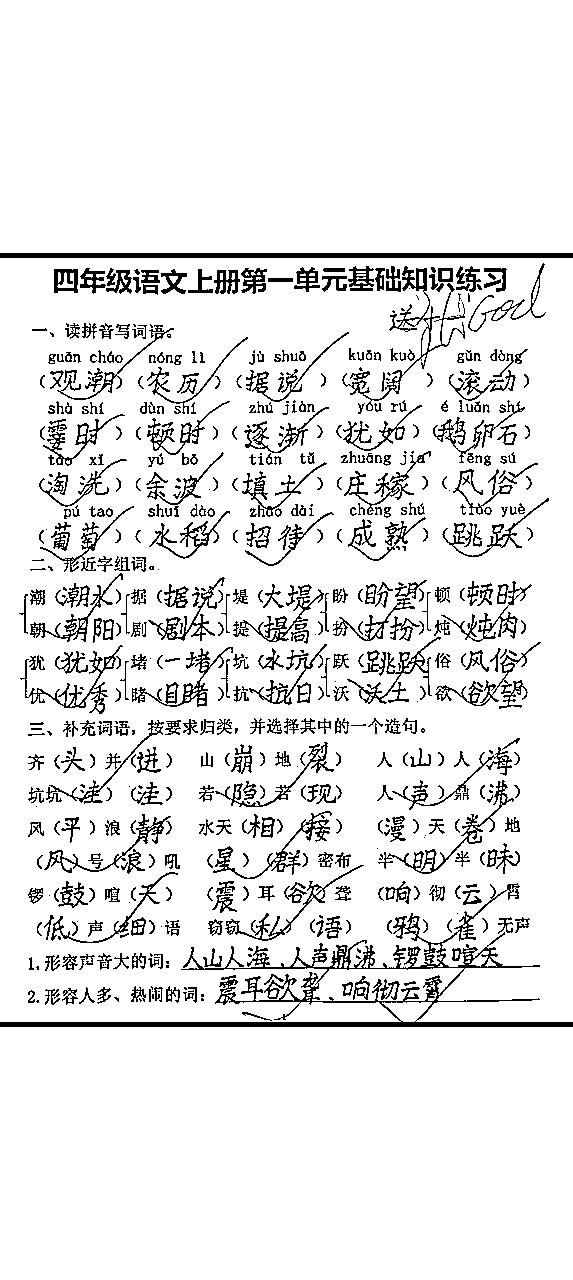 四年级语文上册第一单元基础知识练习
送 God
一、读拼音写词语。
guān cháo nóng lì jù shuō kuān kuò gǔn dòng
(观潮)(农历)(据说)(宽阔)(滚动)
shà shí dùn shí zhú jiàn yóu rú é luǎn shí
(霎时)(顿时)(逐渐)(犹如)(鹅卵石)
táo xǐ yú bō tián tǔ zhuāng jia fēng sú
(淘洗)(余波)(填土)(庄稼)(风俗)
pú tao shuǐ dào zhāo dài chéng shú tiào yuè
(葡萄)(水稻)(招待)(成熟)(跳跃)
二、形近字组词。
潮(潮水) 据(据说) 堤(大堤) 盼(盼望) 顿(顿时)
朝(朝阳) 剧(剧本) 提(提高) 扮(打扮) 炖(炖肉)
犹(犹如) 堵(一堵) 坑(水坑) 跃(跳跃) 俗(风俗)
优(优秀) 睹(目睹) 抗(抗日) 沃(沃土) 欲(欲望)
三、补充词语,按要求归类,并选择其中的一个造句。
齐(头)并(进) 山(崩)地(裂) 人(山)人(海)
坑坑(洼)(洼) 若(隐)若(现) 人(声)鼎(沸)
风(平)浪(静) 水天(相)(接) (漫)天(卷)地
(风)号(浪)吼 (星)(群)密布 半(明)半(昧)
锣(鼓)喧(天) (震)耳(欲)聋 (响)彻(云)霄
(低)声(细)语 窃窃(私)(语) (鸦)(雀)无声
1.形容声音大的词:人山人海、人声鼎沸、锣鼓喧天
2.形容人多、热闹的词:震耳欲聋、响彻云霄